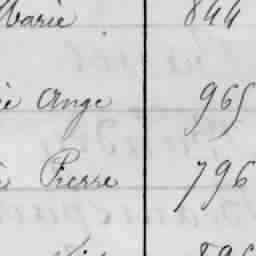 Marie 844
ie Ange 965
Pierre 796